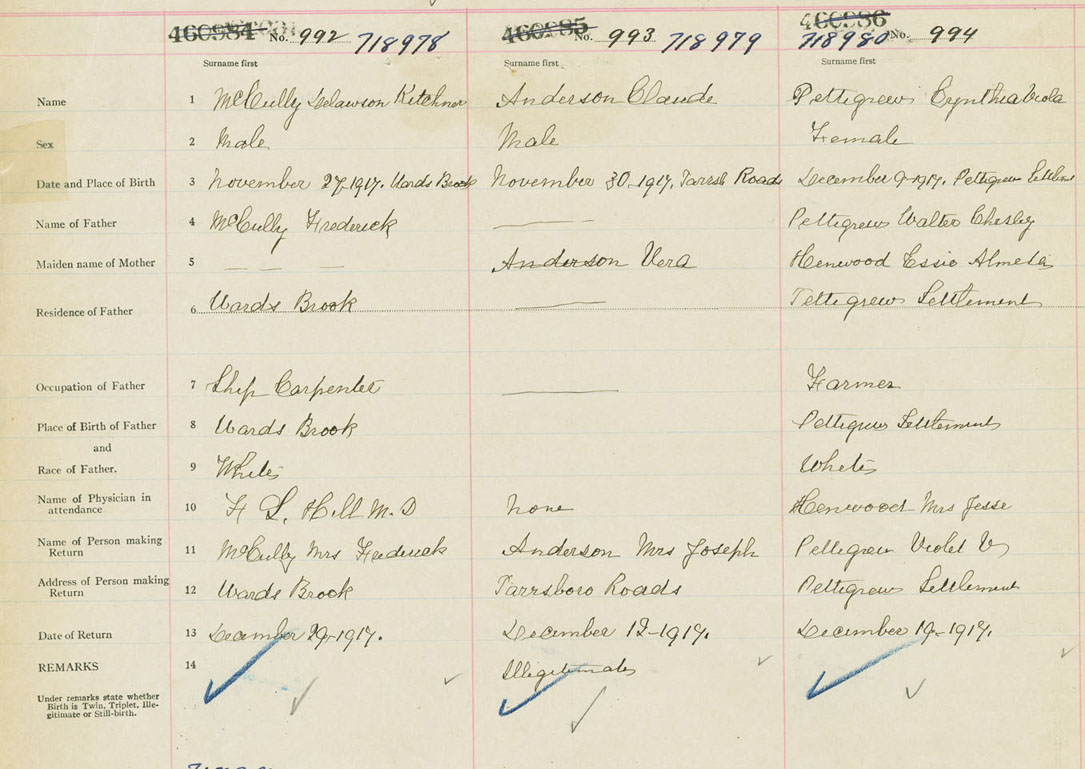 460984 No. 992 718978 460985 No. 993 718979 460986 718980 No. 994
Surname first Surname first Surname first
Name 1 McCully Delawson Kitchner Anderson Claude Pettigrew Cynthia Viola
Sex 2 Male Male Female
Date and Place of Birth 3 November 27-1917. Wards Brook November 30-1917, Parrsb Roads December 9-1917. Pettigrew Settlement
Name of Father 4 McCully Frederick Pettigrew Walter Chesley
Maiden name of Mother 5 Anderson Vera Henwood Essie Almeda
Residence of Father 6 Wards Brook Pettigrew Settlement
Occupation of Father 7 Ship Carpenter Farmer
Place of Birth of Father 8 Wards Brook Pettigrew Settlement
and
Race of Father. 9 White White
Name of Physician in
attendance 10 F L. Hill M.D None Henwood Mrs Jesse
Name of Person making
Return 11 McCully Mrs Frederick Anderson Mrs Joseph Pettigrew Violet V
Address of Person making
Return 12 Wards Brook Parrsboro Roads Pettigrew Settlement
Date of Return 13 December 29-1917. December 12-1917. December 19-1917.
REMARKS 14 Illegitimate
Under remarks state whether
Birth is Twin, Triplet, Ille-
gitimate or Still-birth.